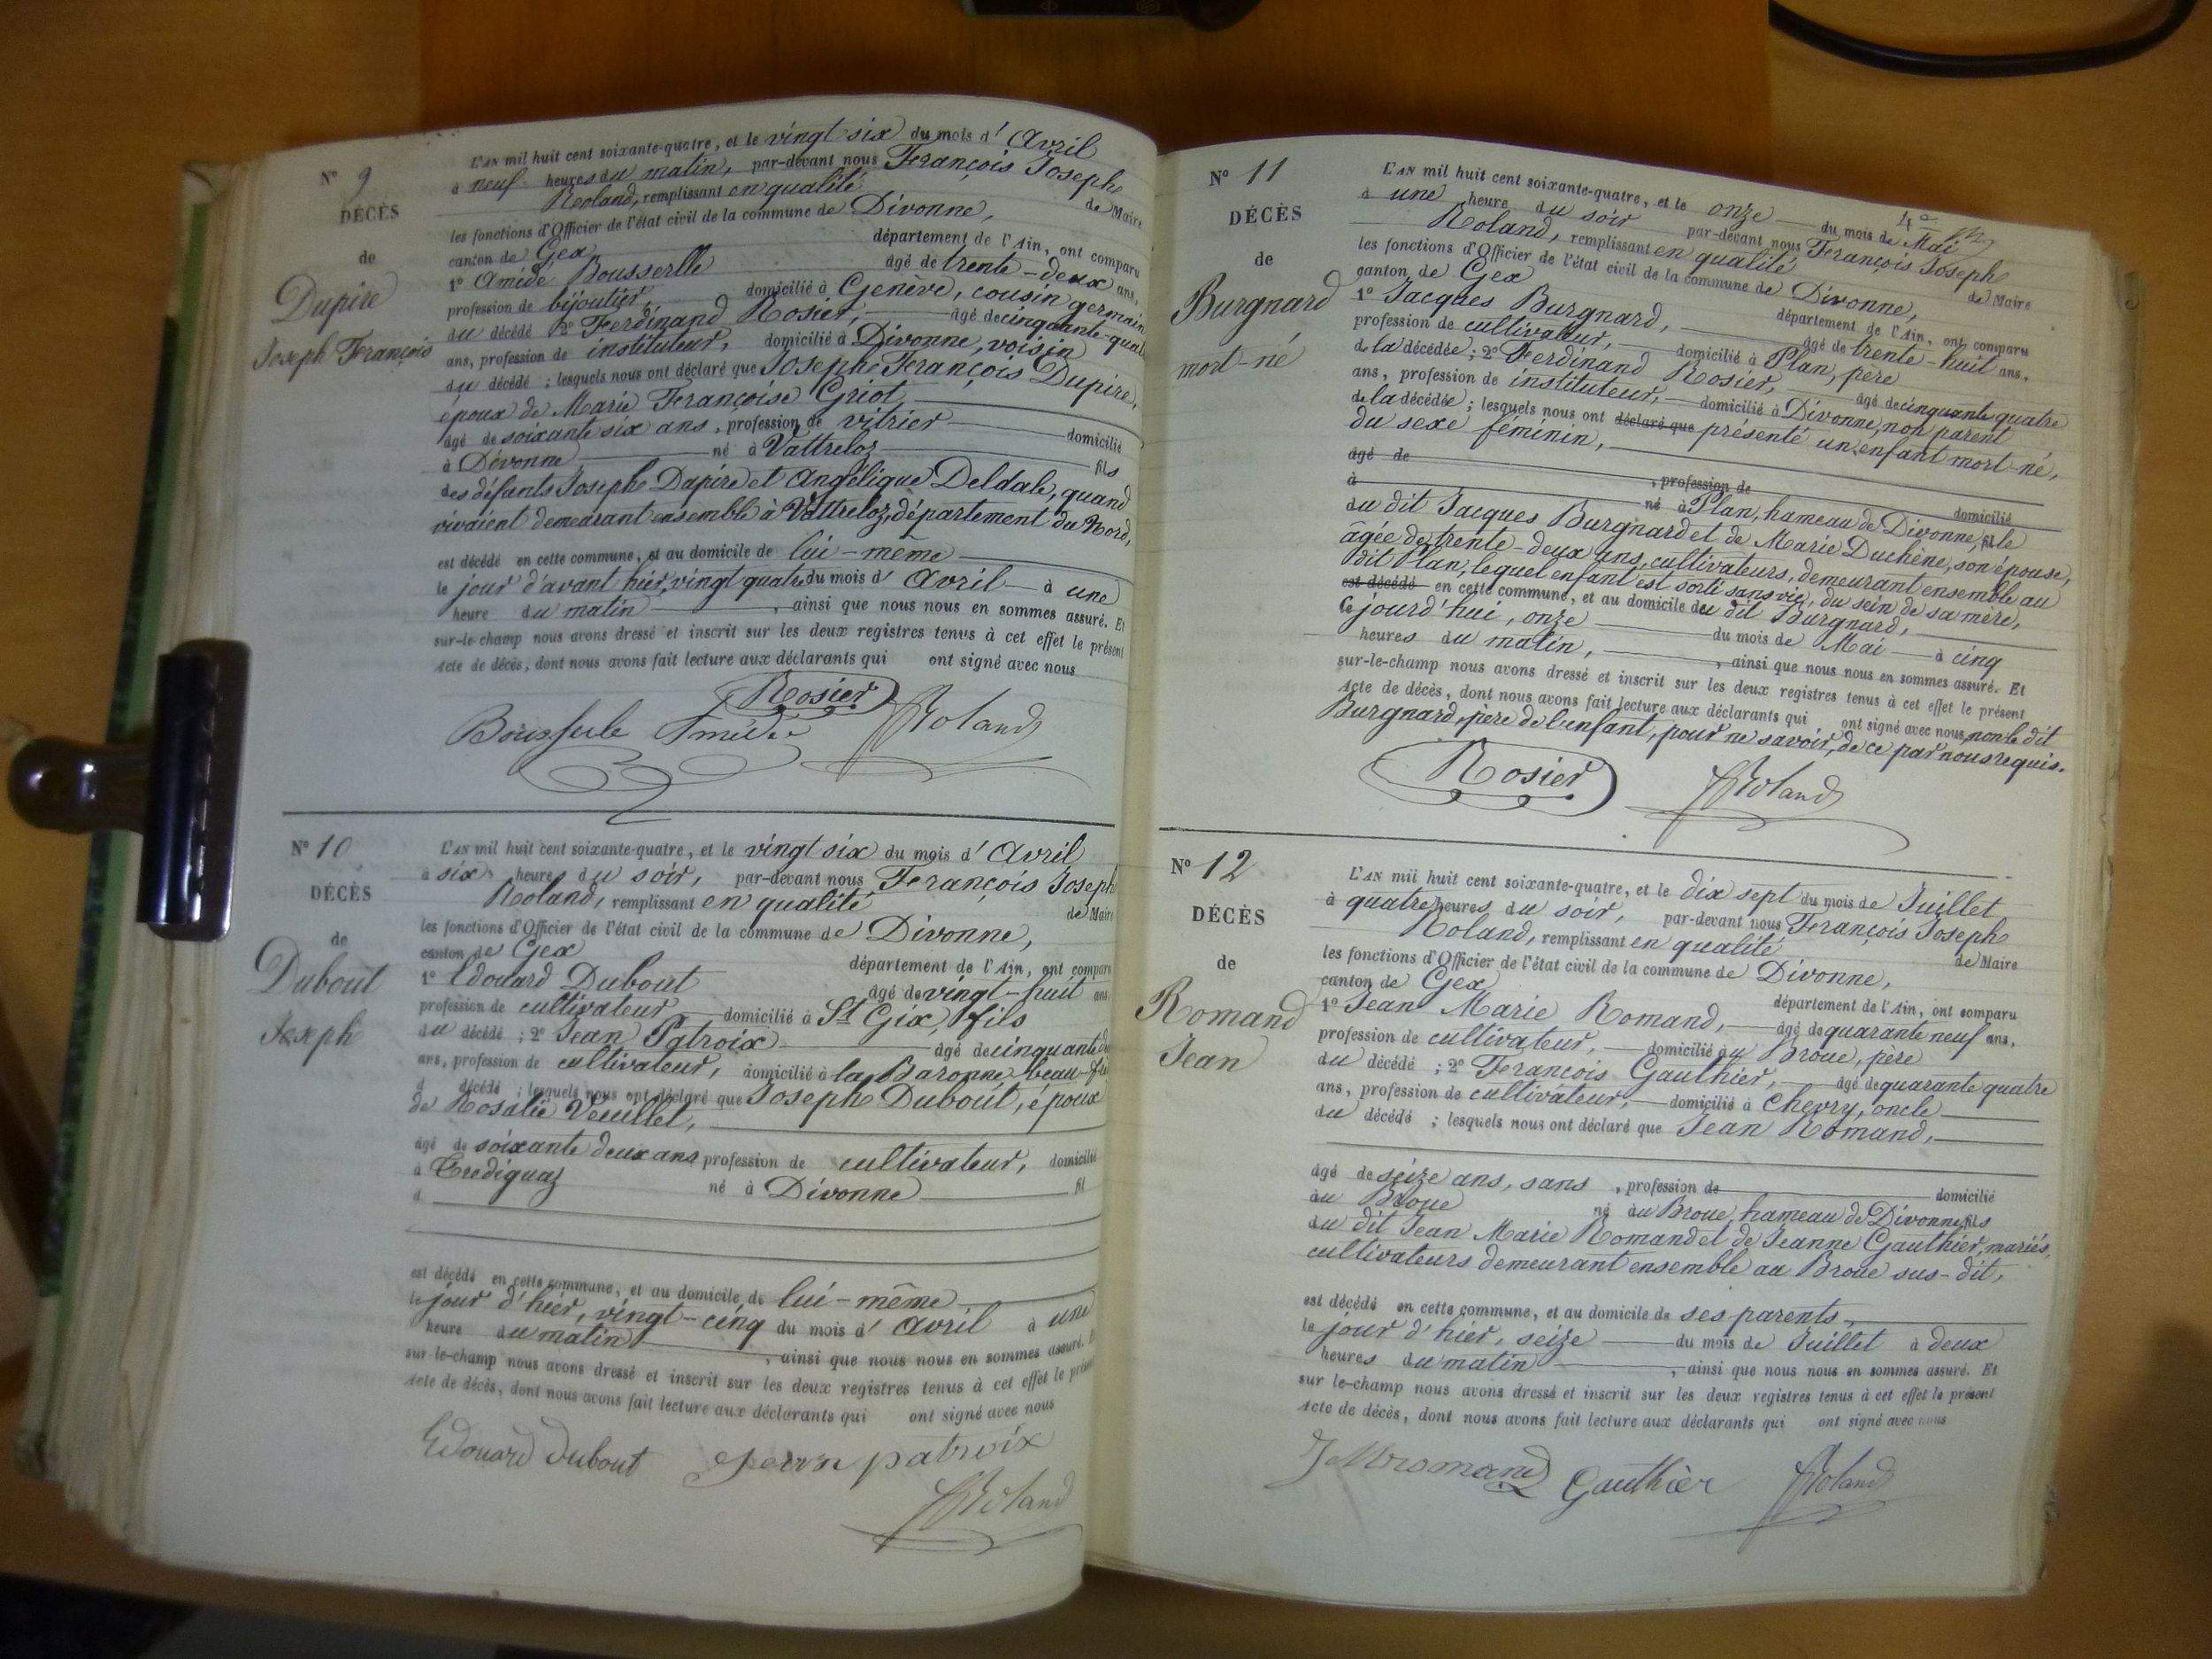 N° 9
DÉCÈS
de
Dupire
Joseph François
L'AN mil huit cent soixante-quatre, et le vingt six du mois d' Avril
à neuf heures du matin, par-devant nous François Joseph
Roland, remplissant en qualité de Maire
les fonctions d'Officier de l'état civil de la commune de Divonne,
canton de Gex département de l'Ain, ont comparu
1° Amédé Bousserlle âgé de trente-deux ans,
profession de bijoutier, domicilié à Genève, cousin germain
du décédé 2° Ferdinand Rosier, âgé de cinquante-quat
ans, profession de instituteur, domicilié à Divonne, voisin
du décédé ; lesquels nous ont déclaré que Joseph François Dupire,
époux de Marie Françoise Griot,
âgé de soixante six ans, profession de vitrier domicilié
à Divonne né à Vattreloz fils
des défunts Joseph Dupire et Angélique Deldale, quand
vivaient demeurant ensemble à Vattreloz, département du Nord,
est décédé en cette commune, et au domicile de lui-même
le jour d'avant hier, vingt quatre du mois d' Avril à une
heure du matin, ainsi que nous nous en sommes assuré. Et
sur-le-champ nous avons dressé et inscrit sur les deux registres tenus à cet effet le présent
Acte de décès, dont nous avons fait lecture aux déclarants qui ont signé avec nous
Rosier
Amédée Roland
N° 10
DÉCÈS
de
Dubout
Joseph
L'AN mil huit cent soixante-quatre, et le vingt six du mois d' Avril
à six heures du soir, par-devant nous François Joseph
Roland, remplissant en qualité de Maire
les fonctions d'Officier de l'état civil de la commune de Divonne,
canton de Gex département de l'Ain, ont comparu
1° Edouard Dubout âgé de vingt-huit ans
profession de cultivateur domicilié à St Gix, fils
du décédé ; 2° Jean Patroix âgé de cinquante
ans, profession de cultivateur, domicilié à la Baronne, beau-fr
d décédé ; lesquels nous ont déclaré que Joseph Dubout, époux
de Rosalie Veuillet,
âgé de soixante deux ans profession de cultivateur, domicilié
à Crediguaz né à Divonne fil
d
est décédé en cette commune, et au domicile de lui-même
le jour d'hier, vingt-cinq du mois d' Avril à une
heure du matin, ainsi que nous nous en sommes assuré. E
sur-le-champ nous avons dressé et inscrit sur les deux registres tenus à cet effet le présent
Acte de décès, dont nous avons fait lecture aux déclarants qui ont signé avec nous
Edouard Dubout Jean patroix
Roland
4e
N° 11
DÉCÈS
de
Burgnard
mort-né
L'AN mil huit cent soixante-quatre, et le onze du mois de Mai
à une heure du soir par-devant nous François Joseph
Roland, remplissant en qualité de Maire
les fonctions d'Officier de l'état civil de la commune de Divonne,
canton de Gex département de l'Ain, ont comparu
1° Jacques Burgnard, âgé de trente-huit ans,
profession de cultivateur, domicilié à Plan, père
de la décédée ; 2° Ferdinand Rosier, âgé de cinquante quatre
ans, profession de instituteur, domicilié à Divonne, non parent
de la décédée ; lesquels nous ont déclaré que présenté un enfant mort-né,
du sexe féminin,
âgé de , profession de domicilié
à né à Plan, hameau de Divonne, fille
du dit Jacques Burgnard et de Marie Duchêne, son épouse,
âgée de trente-deux ans, cultivateurs, demeurant ensemble au
dit Plan, lequel enfant est sorti sans vie, du sein de sa mère,
est décédé en cette commune, et au domicile du dit Burgnard,
Ce jourd'hui, onze du mois de Mai à cinq
heures du matin, ainsi que nous nous en sommes assuré. Et
sur-le-champ nous avons dressé et inscrit sur les deux registres tenus à cet effet le présent
Acte de décès, dont nous avons fait lecture aux déclarants qui ont signé avec nous, non le dit
Burgnard, père de l'enfant, pour ne savoir, de ce par nous requis.
Rosier Roland
N° 12
DÉCÈS
de
Romand
Jean
L'AN mil huit cent soixante-quatre, et le dix sept du mois de Juillet
à quatre heures du soir, par-devant nous François Joseph
Roland, remplissant en qualité de Maire
les fonctions d'Officier de l'état civil de la commune de Divonne,
canton de Gex département de l'Ain, ont comparu
1° Jean Marie Romand, âgé de quarante neuf ans,
profession de cultivateur, domicilié au Broue, père
du décédé ; 2° François Gauthier, âgé de quarante quatre
ans, profession de cultivateur, domicilié à Chevry, oncle
du décédé ; lesquels nous ont déclaré que Jean Romand,
âgé de seize ans, sans , profession de domicilié
au Broue né au Broue, hameau de Divonne, fils
du dit Jean Marie Romand et de Jeanne Gauthier, mariés,
cultivateurs demeurant ensemble au Broue sus-dit,
est décédé en cette commune, et au domicile de ses parents,
le jour d'hier, seize du mois de Juillet à deux
heures du matin, ainsi que nous nous en sommes assuré. Et
sur-le-champ nous avons dressé et inscrit sur les deux registres tenus à cet effet le présent
Acte de décès, dont nous avons fait lecture aux déclarants qui ont signé avec nous
J M romand Gauthier Roland